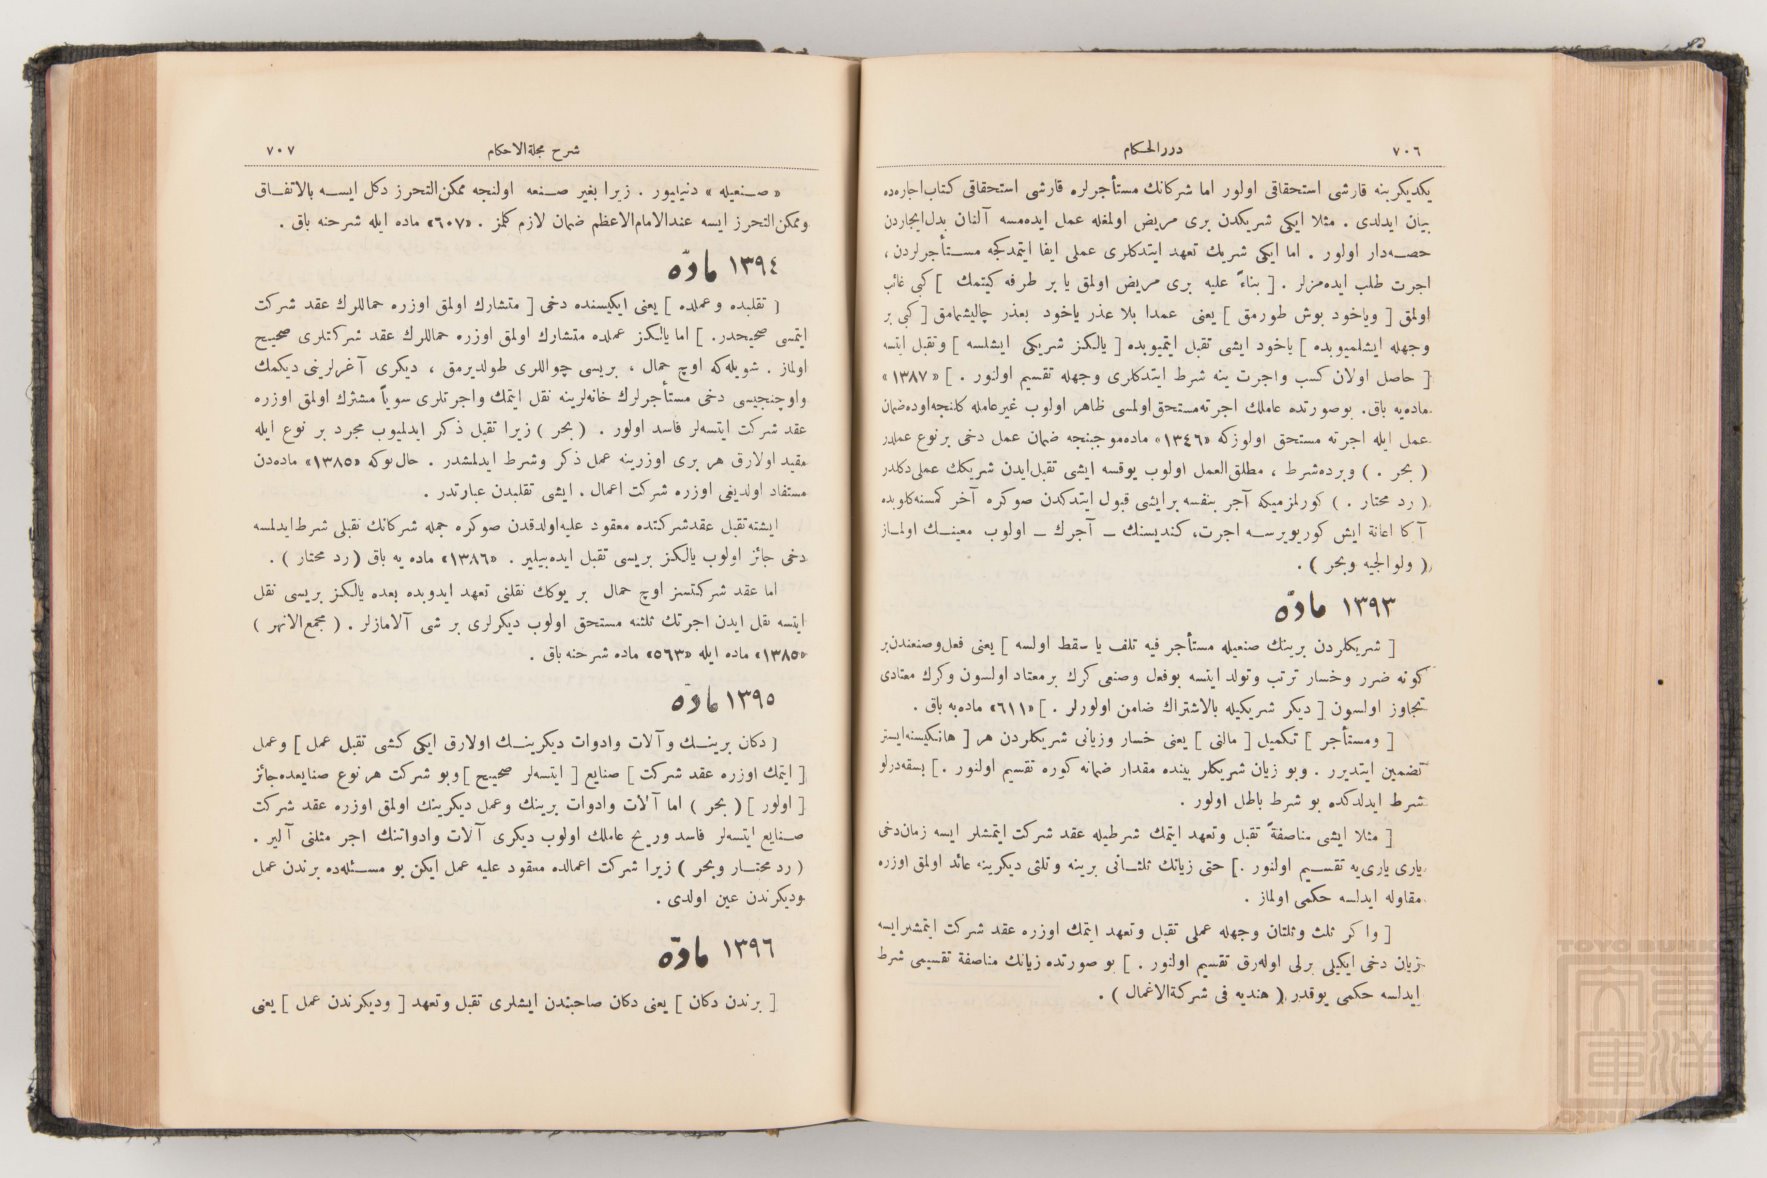 ٧٠٦
دررالحكام
يكديكرينه قارشى استحقاقى اولور اما شركانك مستأجرلره قارشى استحقاقى كتاب اجاره‌ده
بيان ايدلدى . مثلا ايكى شريكدن برى مريض اولمغله عمل ايده‌مسه آلنان بدل ايجاردن
حصه‌دار اولور . اما ايكى شريك تعهد ايتدكلرى عملى ايفا ايتمدكجه مستأجرلردن ،
اجرت طلب ايده‌مزلر . [ بناءً عليه برى مريض اولمق يا بر طرفه كيتمك ] كبى غائب
اولمق [ وياخود بوش طورمق ] يعنى عمدا بلا عذر ياخود بعذر چاليشمامق [ كبى بر
وجهله ايشلميوبده ] ياخود ايشى تقبل ايتميوبده [ يالكز شريكى ايشلسه ] وتقبل ايتسه
[ حاصل اولان كسب واجرت ينه شرط ايتدكلرى وجهله تقسيم اولنور . ] «١٣٨٧»
ماده‌يه باق. بوصورتده عاملك اجرته مستحق اولمسى ظاهر اولوب غيرعامله كلنجه اوده ضمان
عمل ايله اجرته مستحق اولوركه «١٣٤٦» ماده موجبنجه ضمان عمل دخى برنوع عملدر
( بحر . ) وبرده شرط ، مطلق العمل اولوب يوقسه ايشى تقبل ايدن شريكك عملى دكلدر
( رد محتار . ) كورلمزميكه آجر بنفسه برايشى قبول ايتدكدن صوكره آخر كمسنه كلوبده
آكا اعانة ايش كوريويرسه اجرت، كنديسنك ـ آجرك ـ اولوب معينك اولماز
( ولوالجيه وبحر ) .
١٣٩٣ مادّه
[ شريكلردن برينك صنعيله مستأجر فيه تلف يا سقط اولسه ] يعنى فعل وصنعندن بر
كونه ضرر وخسار ترتب وتولد ايتسه بوفعل وصنعى كرك برمعتاد اولسون وكرك معتادى
تجاوز اولسون [ ديكر شريكيله بالاشتراك ضامن اولورلر . ] «٦١١» ماده‌يه باق .
[ ومستأجر ] تكميل [ مالنى ] يعنى خسار وزيانى شريكلردن هر [ هانكيسنه ايستر
تضمين ايتديرر . وبو زيان شريكلر بيننده مقدار ضمانه كوره تقسيم اولنور . ] بشقه‌درلو
شرط ايدلدكده بو شرط باطل اولور .
[ مثلا ايشى مناصفةً تقبل وتعهد ايتمك شرطيله عقد شركت ايتمشلر ايسه زمان دخى
يارى يارى‌يه تقسيم اولنور .] حتى زيانك ثلثانى برينه وثلثى ديكرينه عائد اولمق اوزره
مقاوله ايدلسه حكمى اولماز .
[ واكر ثلث وثلثان وجهله عملى تقبل وتعهد ايتمك اوزره عقد شركت ايتمشلرايسه
زيان دخى ايكيلى برلى اوله‌رق تقسيم اولنور . ] بو صورتده زيانك مناصفة تقسيمى شرط
ايدلسه حكمى يوقدر ( هنديه فى شركةالاعمال ) .
شرح مجلةالاحكام
٧٠٧
« صنعيله » دنيليور . زيرا بغير صنعه اولنجه ممكن التحرز دكل ايسه بالاتفاق
وممكن التحرز ايسه عندالامام الاعظم ضمان لازم كلمز . «٦٠٧» ماده ايله شرحنه باق .
١٣٩٤ مادّه
[ تقلبده وعملده ] يعنى ايكيسنده دخى [ متشارك اولمق اوزره حماللرك عقد شركت
ايتمسى صحيحدر. ] اما يالكز عملده متشارك اولمق اوزره حماللرك عقد شركتلرى صحيح
اولماز . شويله‌كه اوچ حمال ، بريسى چواللرى طولديرمق ، ديكرى آغزلرينى ديكمك
واوچنجيسى دخى مستأجرلرك خانه‌لرينه نقل ايتمك واجرتلرى سوياً مشترك اولمق اوزره
عقد شركت ايتسه‌لر فاسد اولور . ( بحر ) زيرا تقبل ذكر ايدلميوب مجرد بر نوع ايله
مقيد اولارق هر برى اوزرينه عمل ذكر وشرط ايدلمشدر . حال بوكه «١٣٨٥» ماده‌دن
مستفاد اولديغى اوزره شركت اعمال ، ايشى تقلبدن عبارتدر .
ايشته تقبل عقدشركتده معقود عليه اولدقدن صوكره جمله شركانك تقبلى شرط ايدلمسه
دخى جائز اولوب يالكز بريسى تقبل ايده‌بيلير . «١٣٨٦» ماده يه باق (رد محتار ) .
اما عقد شركتسز اوچ حمال بر يوكك نقلنى تعهد ايدوبده بعده يالكز بريسى نقل
ايتسه نقل ايدن اجرتك ثلثنه مستحق اولوب ديكرلرى بر شى آلامازلر . ( مجمع الانهر )
«١٣٨٥» ماده ايله «٥٦٣» ماده شرحنه باق .
١٣٩٥ مادّه
[ دكان برينك وآلات وادوات ديكرينك اولارق ايكى كشى تقبل عمل ] وعمل
[ ايتمك اوزره عقد شركت ] صنايع [ ايتسه‌لر صحيح ] وبو شركت هر نوع صنايعده جائز
[ اولور ] ( بحر ) اما آلات وادوات برينك وعمل ديكرينك اولمق اوزره عقد شركت
صنايع ايتسه‌لر فاسد وربح عاملك اولوب ديكرى آلات وادواتنك اجر مثلنى آلير .
( رد محتار وبحر ) زيرا شركت اعمالده معقود عليه عمل ايكن بو مسئله‌ده برندن عمل
وديكرندن عين اولدى .
١٣٩٦ مادّه
[ برندن دكان ] يعنى دكان صاحبندن ايشلرى تقبل وتعهد [ وديكرندن عمل ] يعنى
TOYO BUNKO
東洋
文庫
TOYO BUNKO